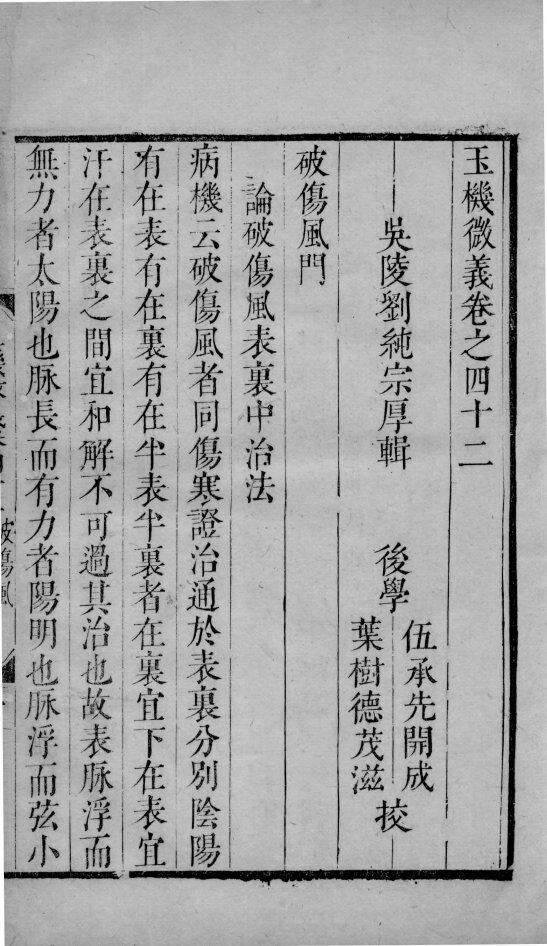 玉機微義卷之四十二
吳陵劉純宗厚輯
後學
伍承先開成
葉樹德茂滋
挍
破傷風門
論破傷風表裏中治法
病機云破傷風者同傷寒證治通於表裏分別陰陽
有在表有在裏有在半表半裏者在裏宜下在表宜
汗在表裏之間宜和解不可過其治也故表脈浮而
無力者太陽也脈長而有力者陽明也脈浮而弦小
破傷風